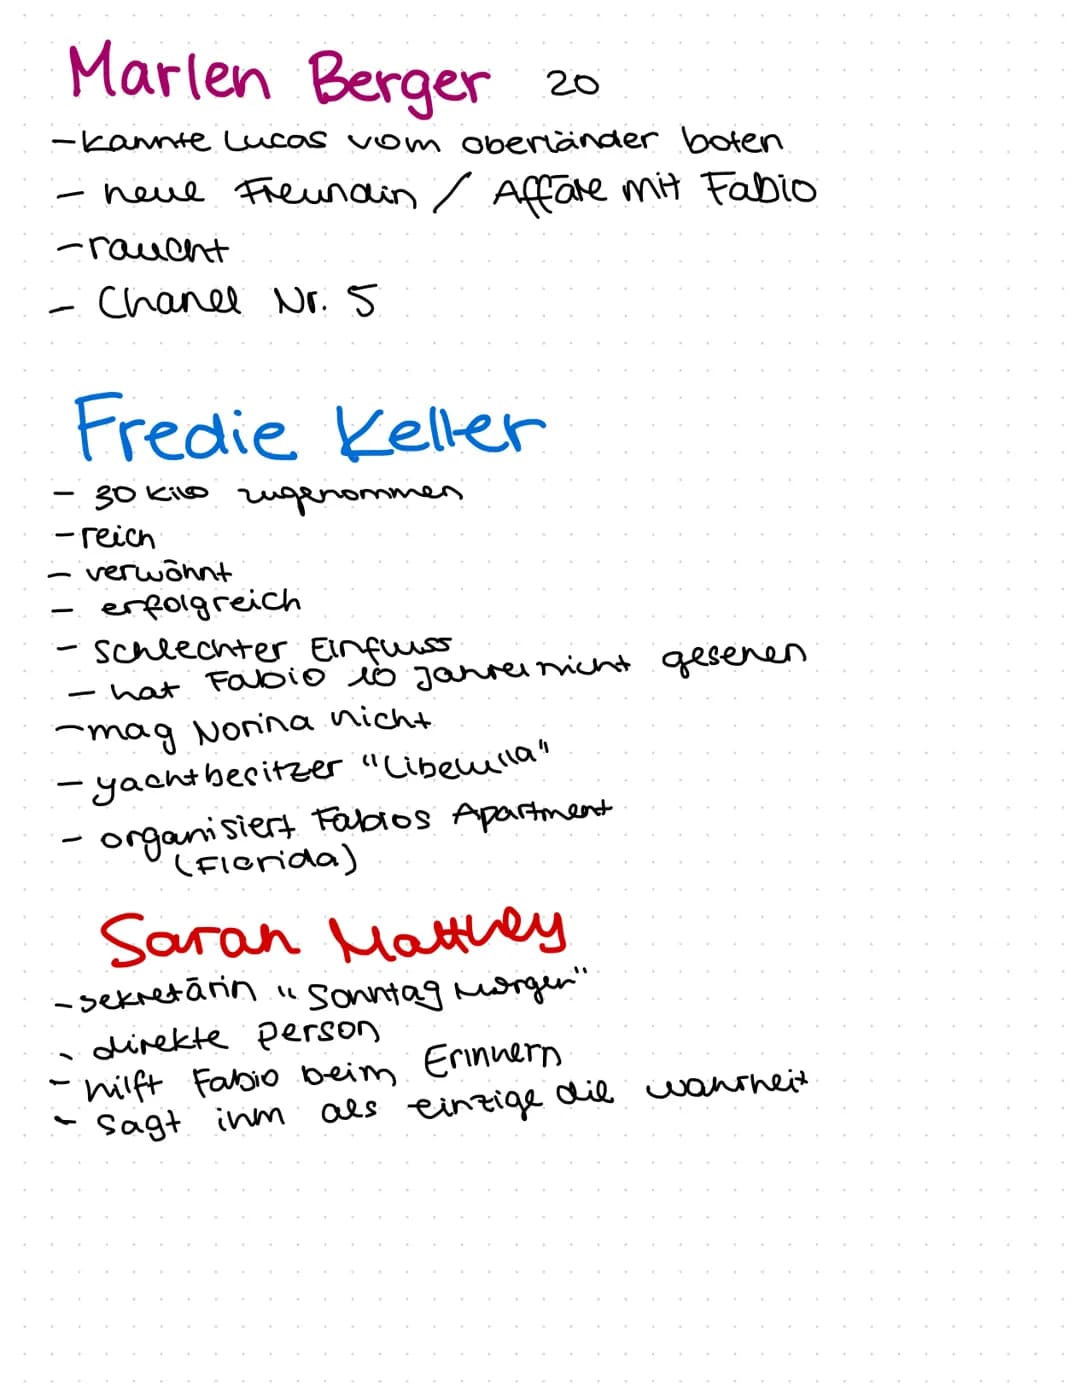 Marlen Berger 20
- kannte Lucas vom oberländer boten
- neue Freundin / Affäre mit Fabio
- raucht
- Chanel Nr. 5
Fredie Keller
- 30 Kilo zugenommen
- reich
- verwöhnt
- erfolgreich
- schlechter Einfluss
- hat Fabio 10 Jahre nicht gesehen
- mag Norina nicht
- yachtbesitzer "Libellula"
- organisiert Fabios Apartment
(Florida)
Sarah Matthey
- sekretärin "Sonntag Morgen"
- direkte person
- hilft Fabio beim Erinnern
- sagt ihm als einzige die wahrheit